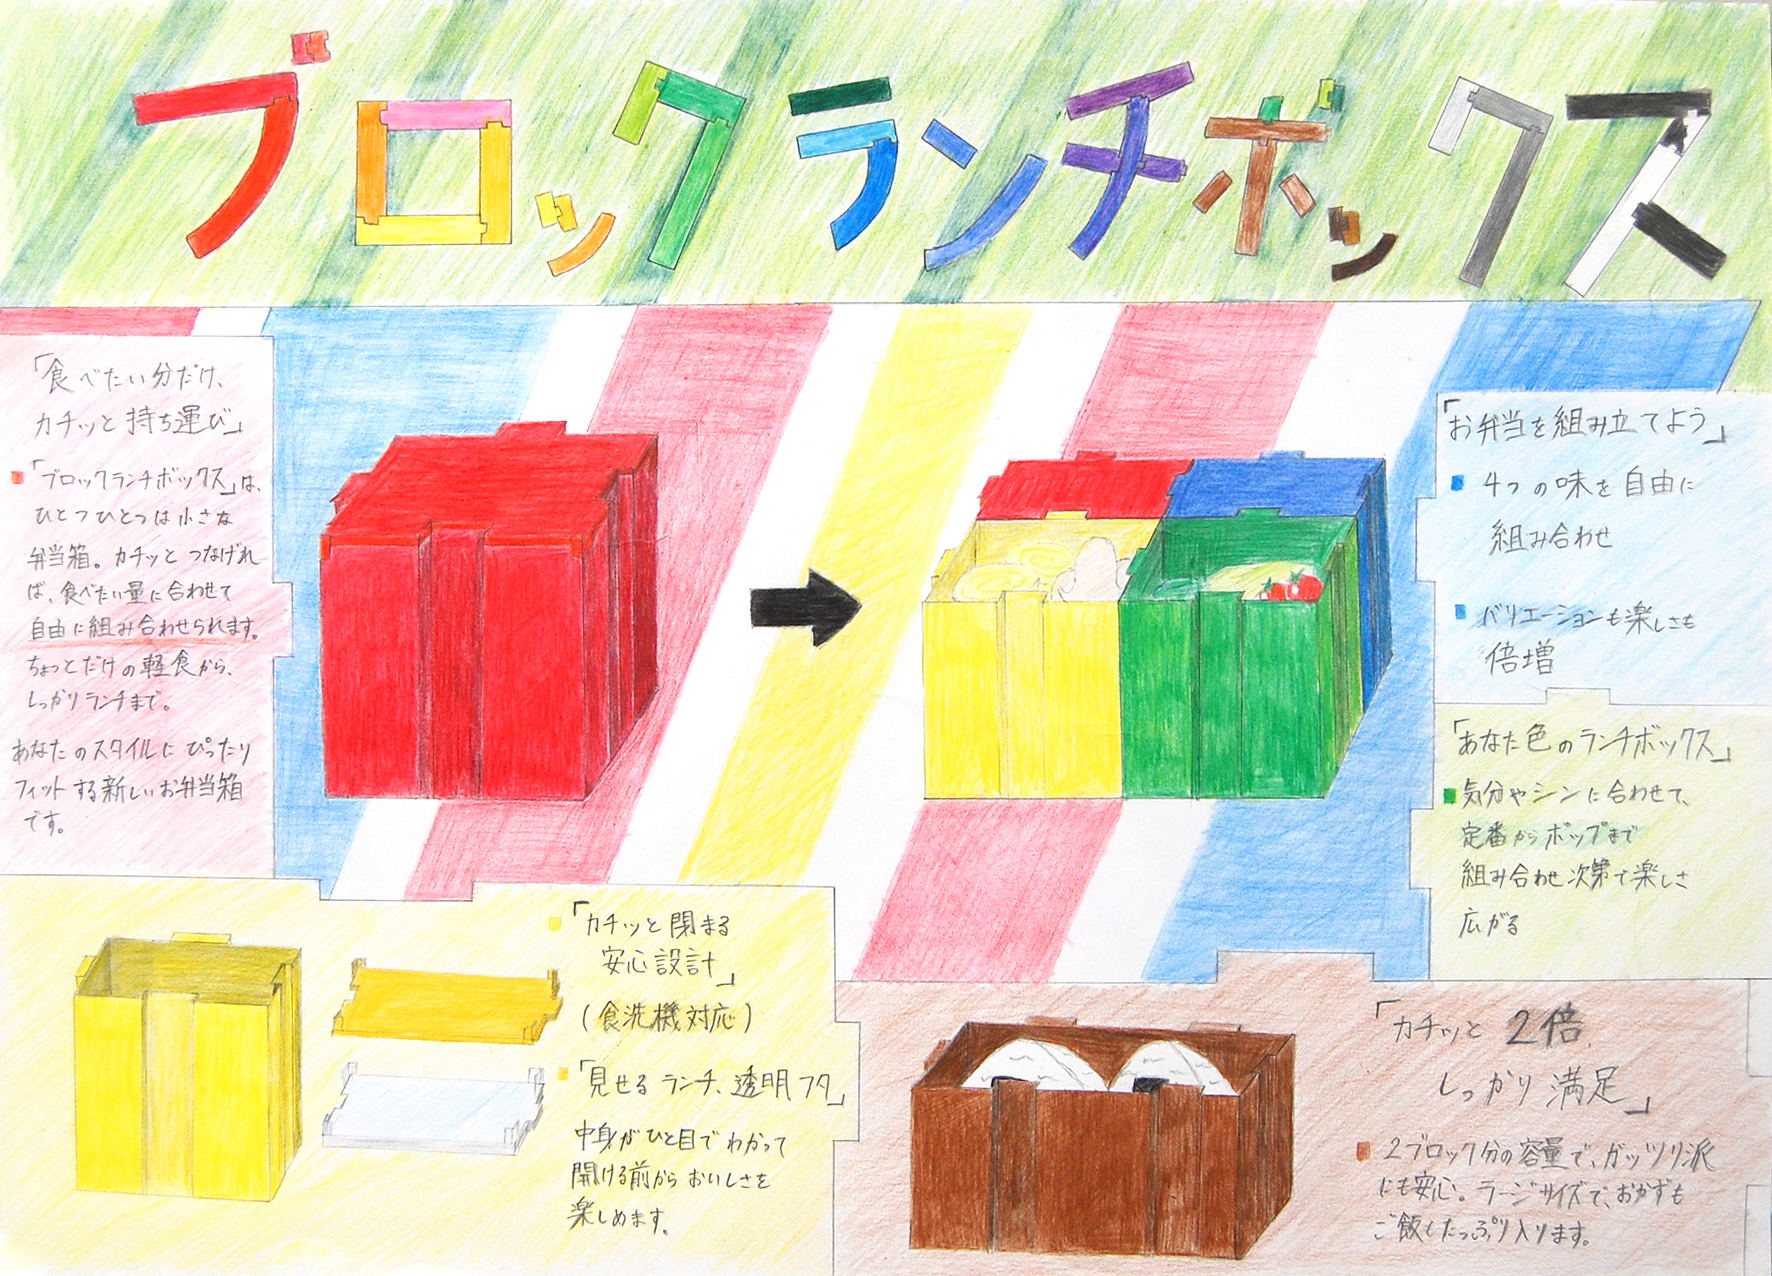 ブロックランチボックス
「食べたい分だけ、
カチッと持ち運び」
「ブロックランチボックス」は、
ひとつひとつは小さな
弁当箱。カチッとつなげれ
ば、食べたい量に合わせて
自由に組み合わせられます。
ちょっとだけの軽食から、
しっかりランチまで。
あなたのスタイルにぴったり
フィットする新しいお弁当箱
です。
「お弁当を組み立てよう」
4つの味を自由に
組み合わせ
バリエーションも楽しさも
倍増
「あなた色のランチボックス」
気分やシンに合わせて、
定番からポップまで
組み合わせ次第で楽しさ
広がる
「カチッと閉まる
安心設計」
(食洗機対応)
「見せるランチ、透明フタ」
中身がひと目でわかって
開ける前からおいしさを
楽しめます。
「カチッと2倍、
しっかり満足」
2ブロック分の容量で、ガッツリ派
にも安心。ラージサイズで、おかずも
ご飯もたっぷり入ります。